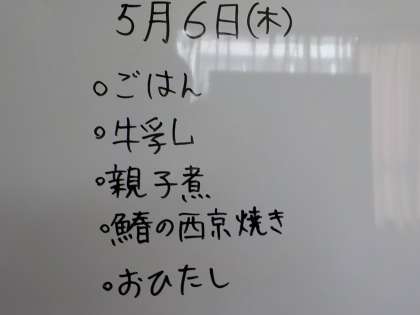 5月6日(木)
○ごはん
○牛乳
○親子煮
○鰆の西京焼き
○おひたし